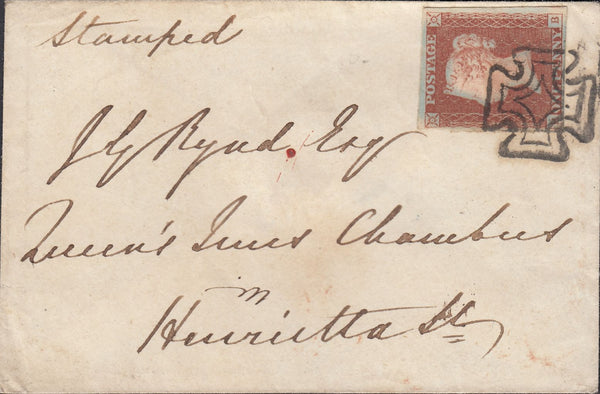 Stamped
POSTAGE
B
J G Rynd. Esq
Queen's Inns Chambers
Henrietta St